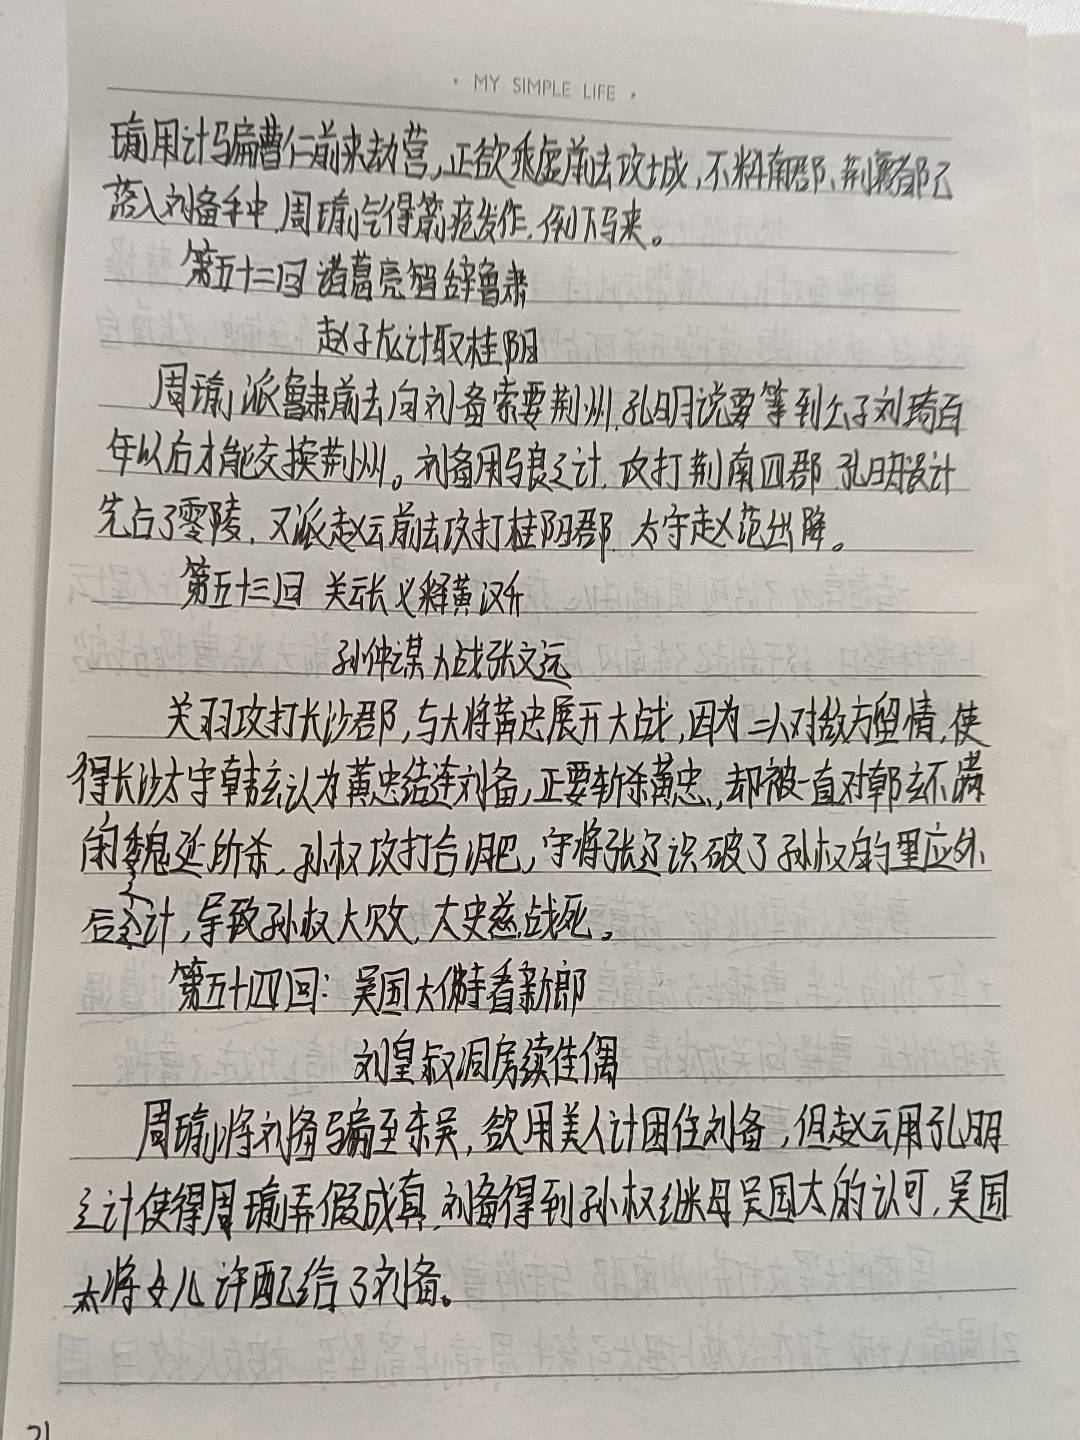 · MY SIMPLE LIFE ·
瑜用计骗曹仁前来劫营,正欲乘虚前去攻城,不料南郡、荆襄都已
落入刘备手中.周瑜气得箭疮发作,倒下马来。
第五十二回 诸葛亮智辞鲁肃
赵子龙计取桂阳
周瑜派鲁肃前去向刘备索要荆州.孔明说要等到公子刘琦百
年以后才能交换荆州。刘备用马良之计,攻打荆南四郡.孔明设计
先占了零陵,又派赵云前去攻打桂阳郡.太守赵范出降。
第五十三回 关云长义释黄汉升
孙仲谋大战张文远
关羽攻打长沙郡,与大将黄忠展开大战,因为二人对敌方留情,使
得长沙太守韩玄认为黄忠结连刘备,正要斩杀黄忠,却被一直对郭玄不满
的魏延所杀.孙权攻打合肥,守将张辽识破了孙权的里应外
后之计,导致孙权大败,太史慈战死。
第五十四回:吴国太佛寺看新郎
刘皇叔洞房续佳偶
周瑜将刘备骗至东吴,欲用美人计困住刘备,但赵云用孔明
之计使得周瑜弄假成真.刘备得到孙权继母吴国太的认可,吴国
太将女儿许配给了刘备。
21